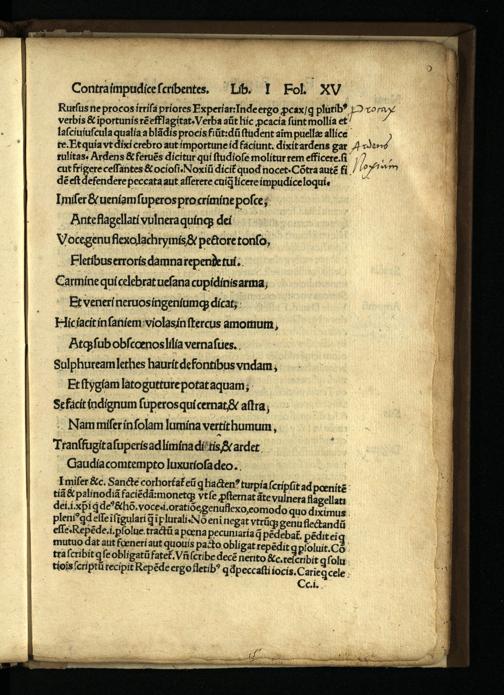 Contra impudice scribentes. Lib. I Fol. XV
Rursus ne procos irrisa priores Experiar: Inde ergo ꝓcax/q plutibꝰ
verbis & iportunis rē efflagitat. Verba aūt hic ꝓcacia sunt mollia et
lasciuiuscula qualia a blādis procis fiūt: dū student aīm puellæ allice
re. Et quia vt dixi crebro aut importune id faciunt. dixit ardens gar
rulitas. Ardens & feruēs dicitur qui studiose molitur rem efficere. si
cut frigere cessantes & ociosi. Noxiū dicit᷑ quod nocet. Cōtra autē fi
dē est defendere peccata aut asserere cuiq̨ licere impudice loqui.
Procax
Ardens
Noxium
I miser & ueniam superos pro crimine posce,
Ante flagellati vulnera quinq̨ dei
Voce genu flexo, lachrymis, & pectore tonso,
Fletibus erroris damna repende tui.
Carmine qui celebrat uesana cupidinis arma,
Et veneri neruos ingeniumq̨ dicat,
Hic iacit in saniem violas, in stercus amomum,
Atq̨ sub obscœnos lilia verna sues.
Sulphuream lethes haurit de fontibus vndam,
Et stygiam lato gutture potat aquam,
Se facit indignum superos qui cernat, & astra,
Nam miser in solam lumina vertit humum,
Transfugit a superis ad limina ditis, & ardet
Gaudia comtempto luxuriosa deo.
I miser &c. Sancte corhortat᷑ eū q hactenꝰ turpia scripsit ad pœnitē
tiā & palinodiā faciēdā: monetq̨ vt se ꝓsternat āte vulnera flagellati
dei .i. xp̄i q deꝰ & hō. voce .i. oratiōe, genu flexo, eo modo quo diximus
pleniꝰ qd esse i sigulari q̄ i plurali. No eni negat vtrūq̨ genu flectandū
esse. Repēde .i. ꝑsolue. tractū a pœna pecuniaria q̄ pēdebat᷑. pēdit ei q
mutuo dat aut fœneri aut quouis pacto obligat repēdit q ꝑsoluit. Cō
tra scribit q se obligatū fatet᷑. Vn̄ scribe decē nerito &c. rescribit q solu
tiōis scriptū recipit Repēde ergo fletibꝰ q dpeccasti iocis. Carie q cele
Cc.i.